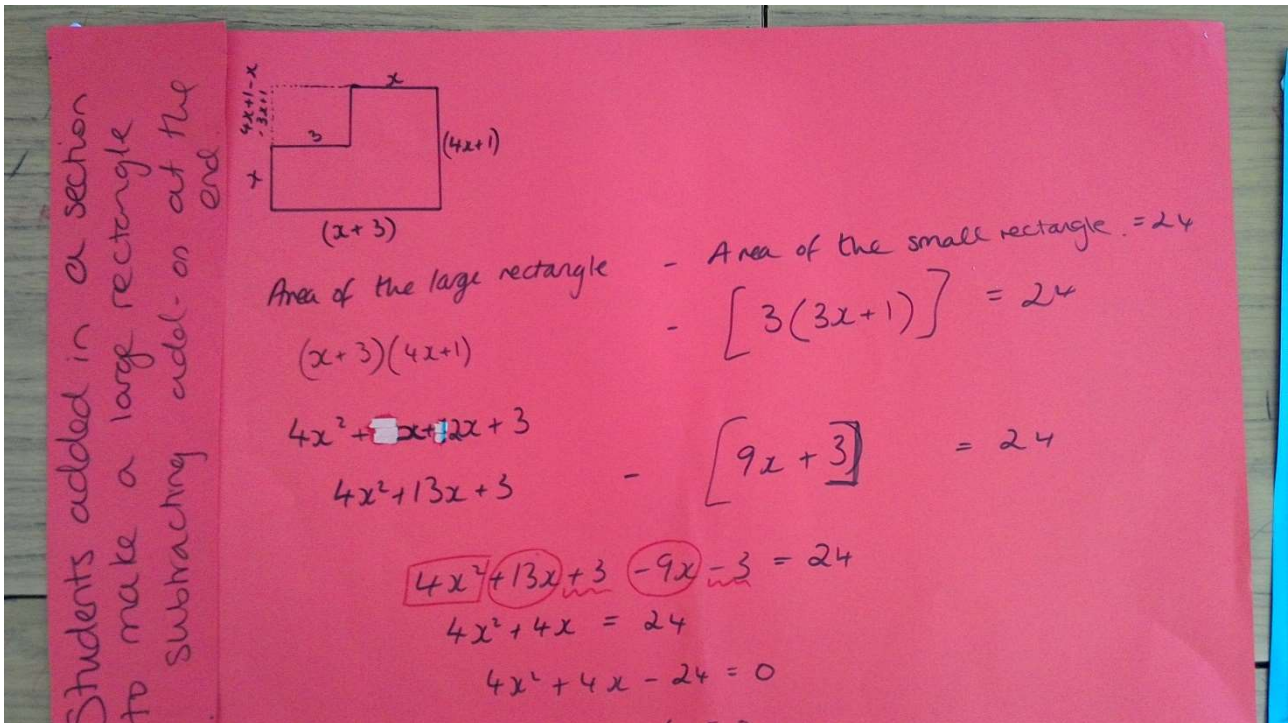 Students added in a section
to make a large rectangle
subtracting add-on at the
end
4x+1-x
-3x+1
x
3
(4x+1)
x
(x+3)
Area of the large rectangle - Area of the small rectangle. = 24
(x+3)(4x+1) - [3(3x+1)] = 24
4x² + x+12x + 3
4x²+13x+3 - [9x+3] = 24
4x²+13x+3 -9x-3 = 24
4x²+4x = 24
4x²+4x-24=0